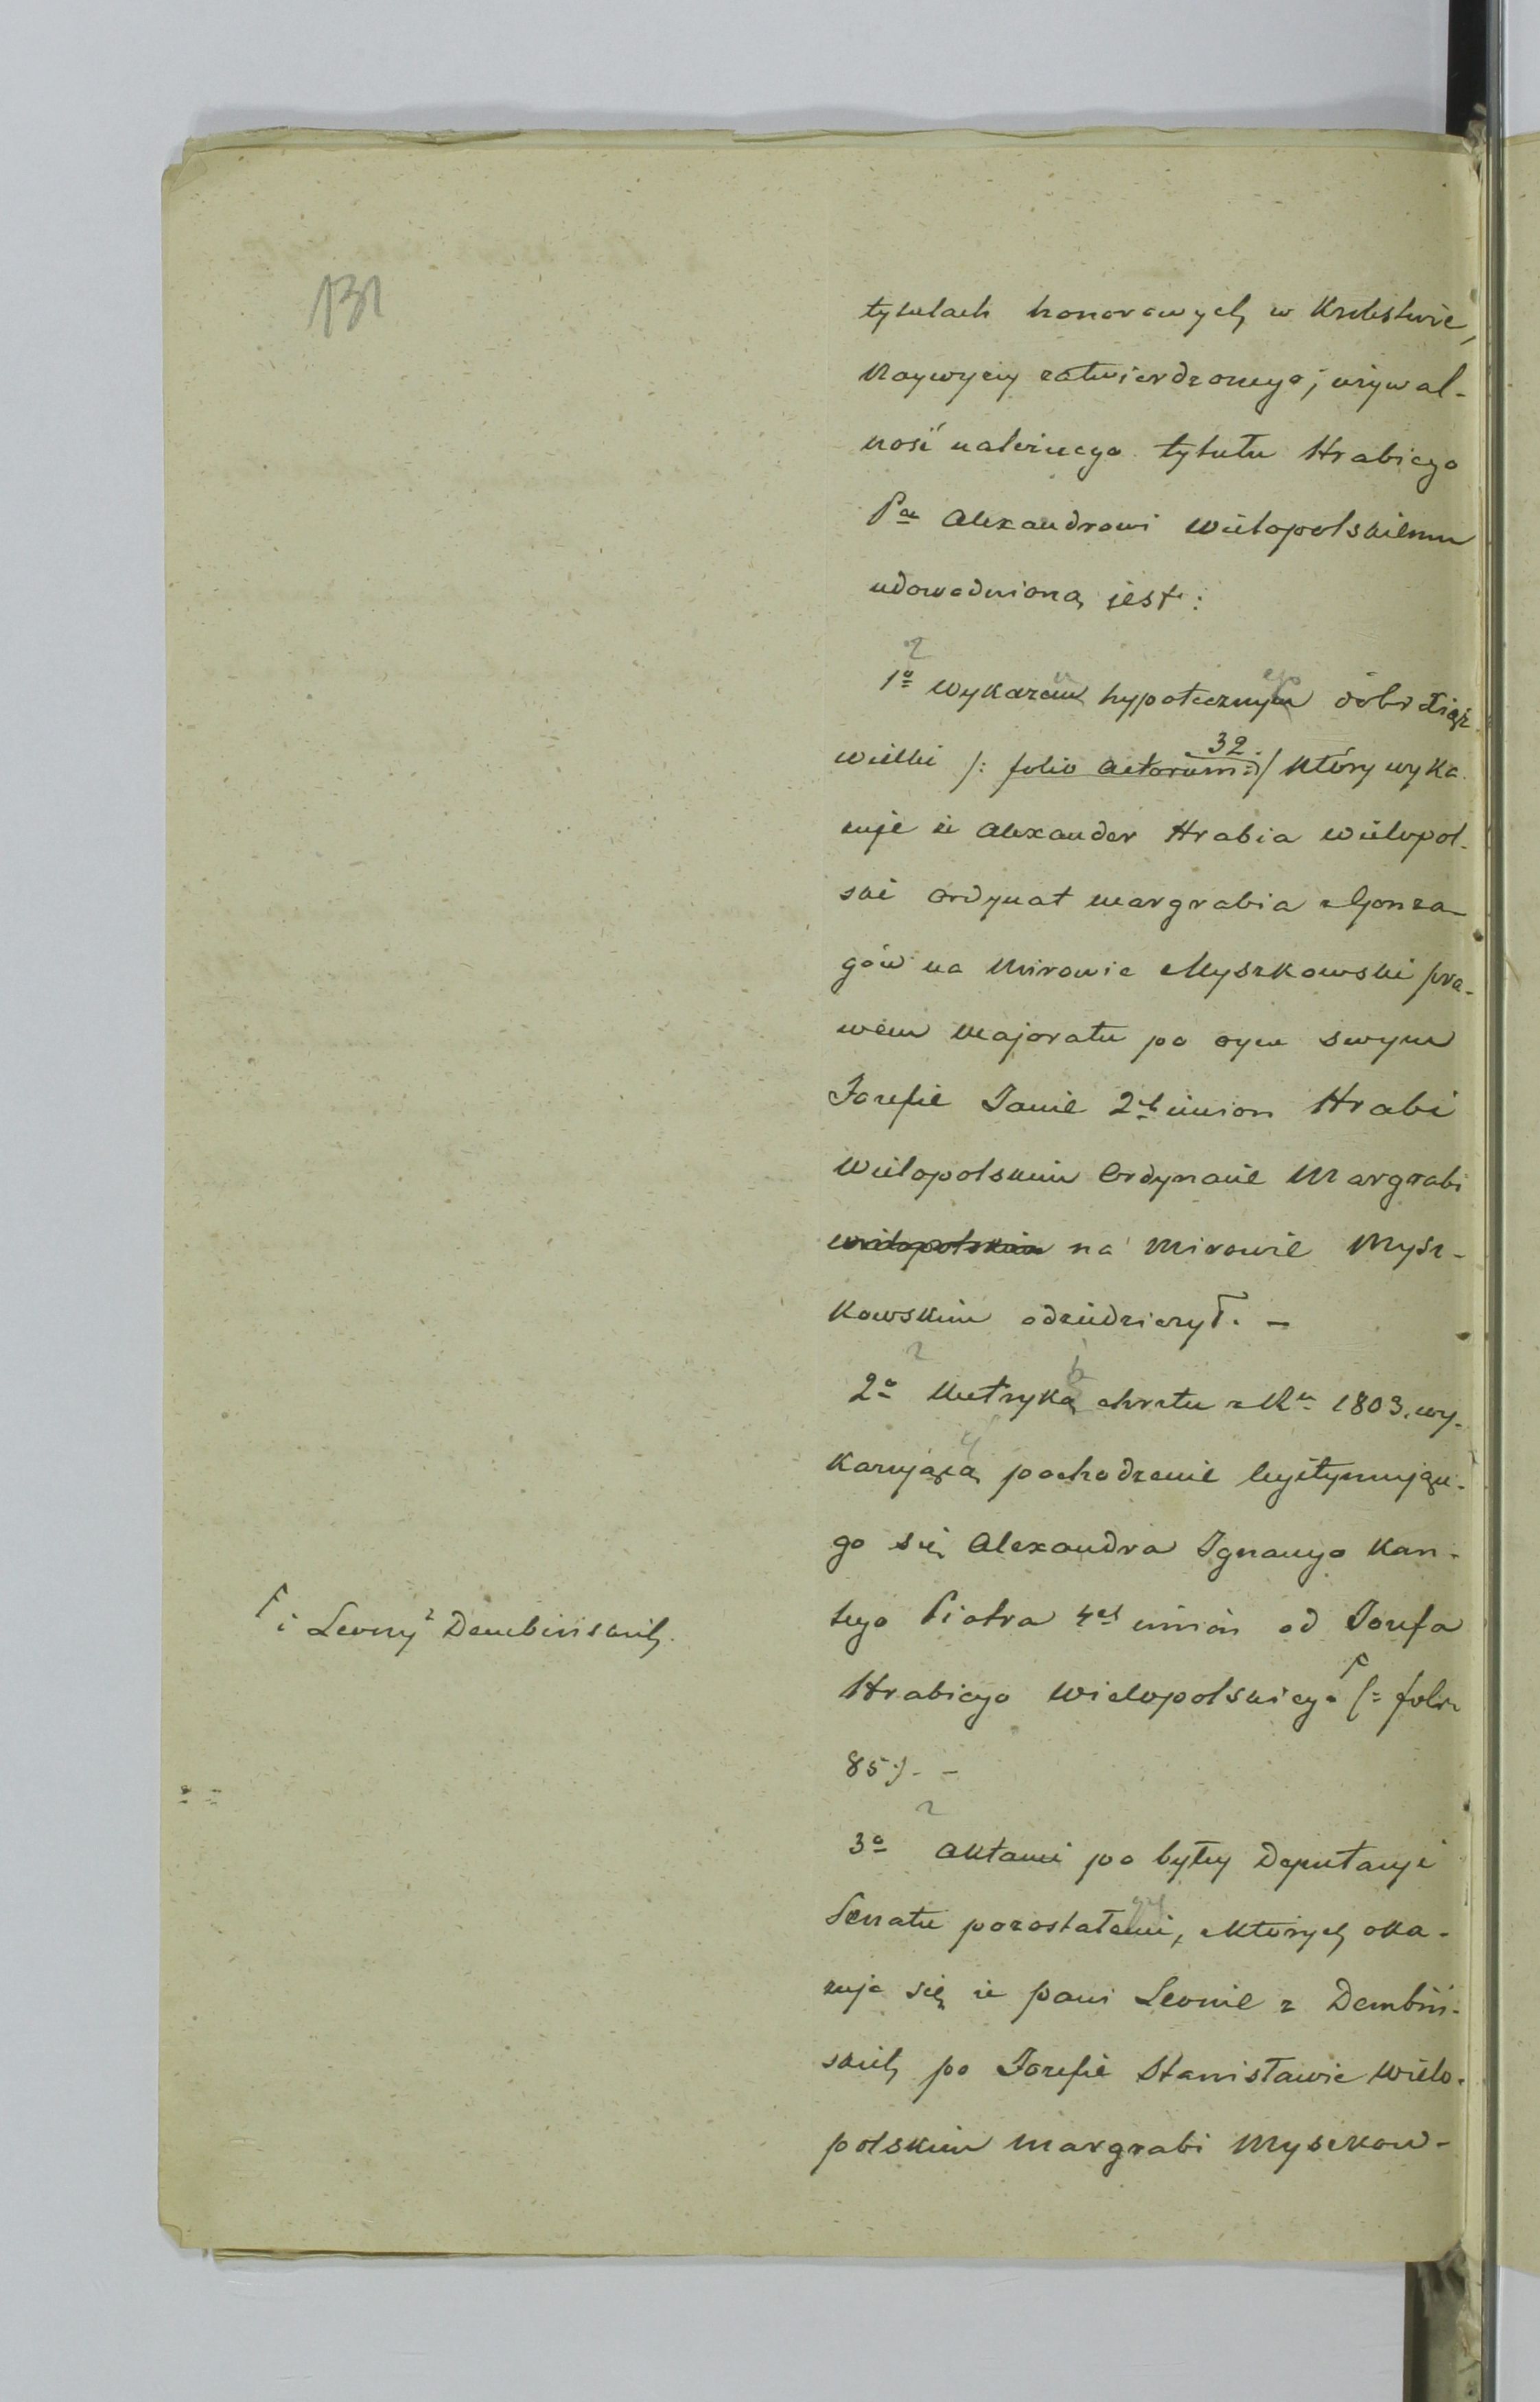 131
tytulach honorowych w Królestwie,
Naywyżey zatwierdzonego; używal-
ność należnego tytułu Hrabiego
Pu Alexandrowi Wielopolskiemu
udowodnioną jest:
z
1o Wykazem hypotecznym ego dóbr Xiąż
wielki /: folio actorum 32 :/ który wyka
zuje że Alexander Hrabia Wielopol-
ski Ordynat margrabia z Gonza-
gów na Mirowie Myszkowski pra-
wem Majoratu po oycu swym
Jozefie Janie 2ch imion Hrabi
Wielopolskim Ordynacie Margrabi
Wielopolskim na Mirowie Mysz-
kowskim odziedziczył. -
z
2o Metryką chrztu z Ru 1803. wy-
kazującą pochodzenie legitymujące-
go się Alexandra Ignacego Kan-
tego Piotra 4ch imion od Jozefa
Hrabiego Wielopolskiego /: folio
i Leony z Dembińskich
85:/. -
z
3o Aktami po byłey Deputacyi
Senatu pozostałemi, z których oka-
zuje się że pani Leonie z Dembiń-
skich po Jozefie Stanisławie Wielo-
polskim margrabi Myszkow-